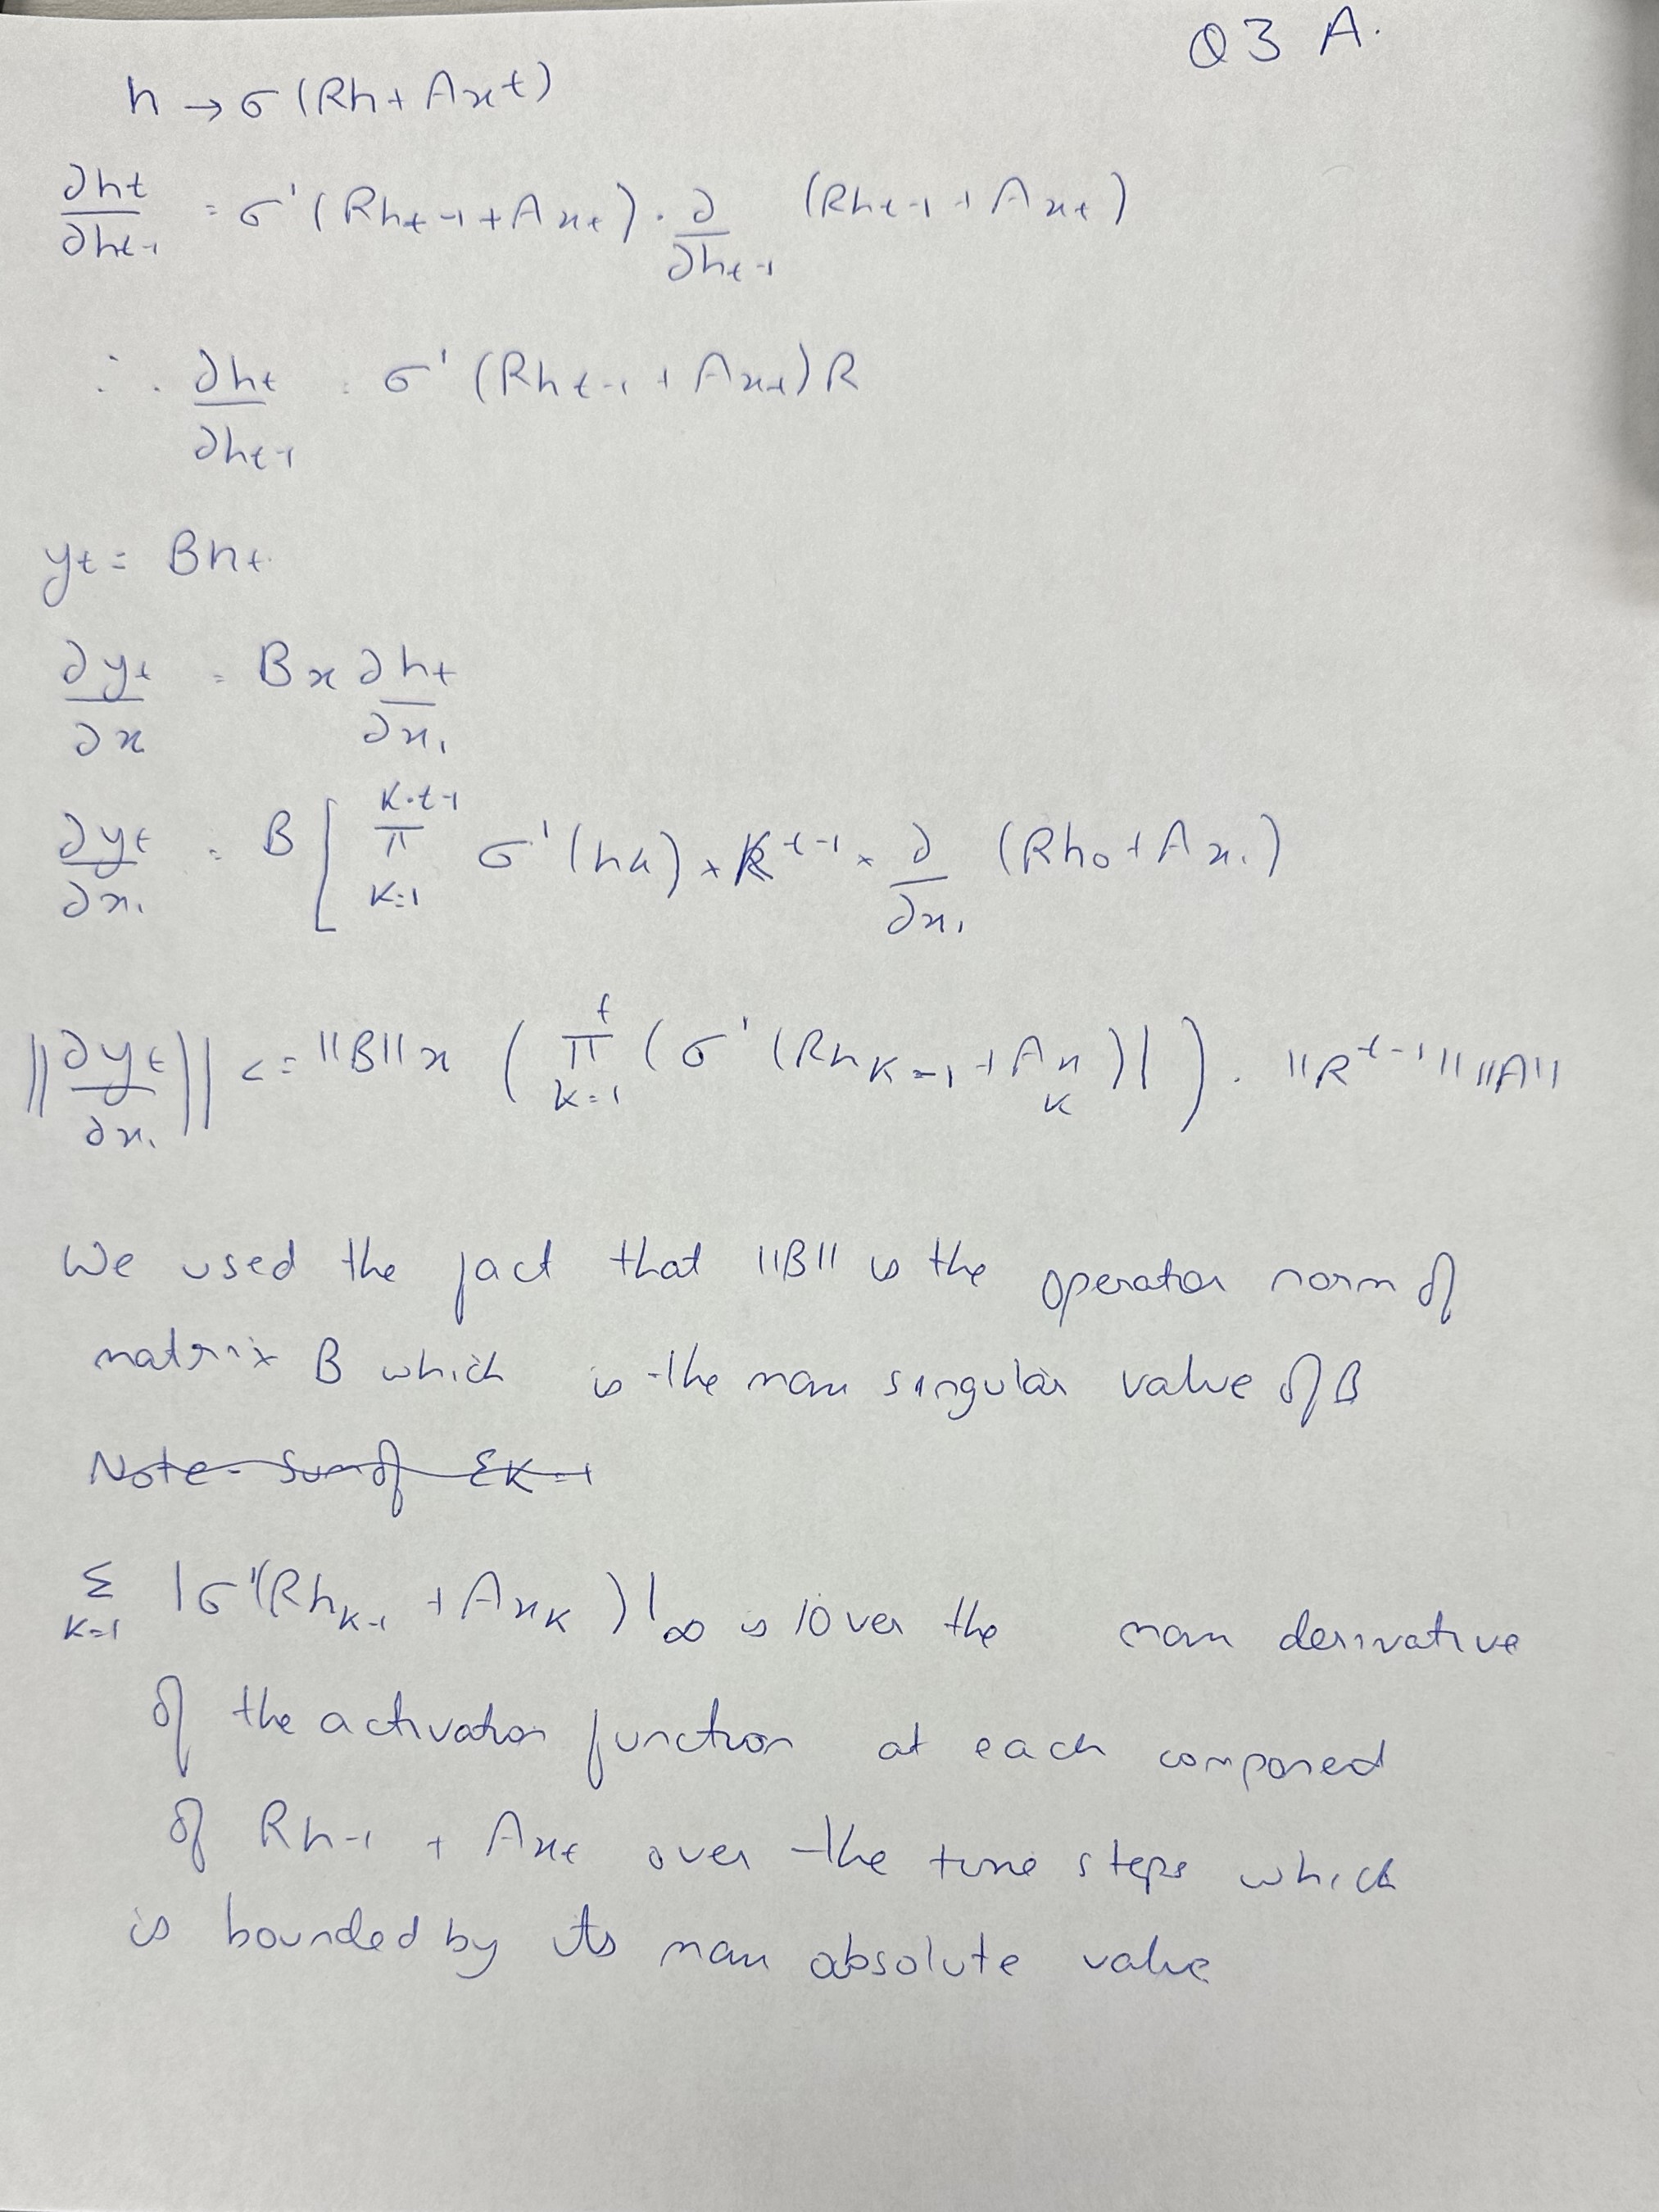 Q3 A.
h → σ(Rh + Axt)
∂ht/∂ht-1 = σ'(Rht-1 + Axt) · ∂/∂ht-1 (Rht-1 + Axt)
∴ ∂ht/∂ht-1 = σ'(Rht-1 + Axt)R
yt = Bht
∂yt/∂x = B x ∂ht/∂x1
∂yt/∂x1 = B [ π K=t-1 K=1 σ'(hk) x R^t-1 x ∂/∂x1 (Rho + Ax1)
||∂yt/∂x1|| <= ||B|| x ( π t k=1 (σ'(RhK-1 + AxK)| ) . ||R^t-1|| ||A||
We used the fact that ||B|| is the operator norm of
matrix B which is the max singular value of B
Note - Sum of ΣK=1
Σ K=1 |σ'(RhK-1 + AxK)|∞ is over the max derivative
of the activation function at each component
of Rh-1 + Axt over the time steps which
is bounded by its max absolute value